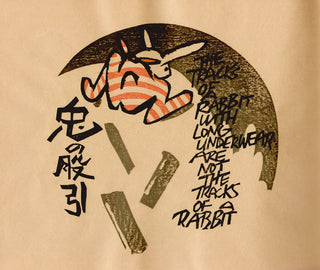 兎の股引
THE
TRACKS
OF
RABBIT
WITH
LONG
UNDERWEAR
ARE
NOT
THE
TRACKS
OF A
RABBIT